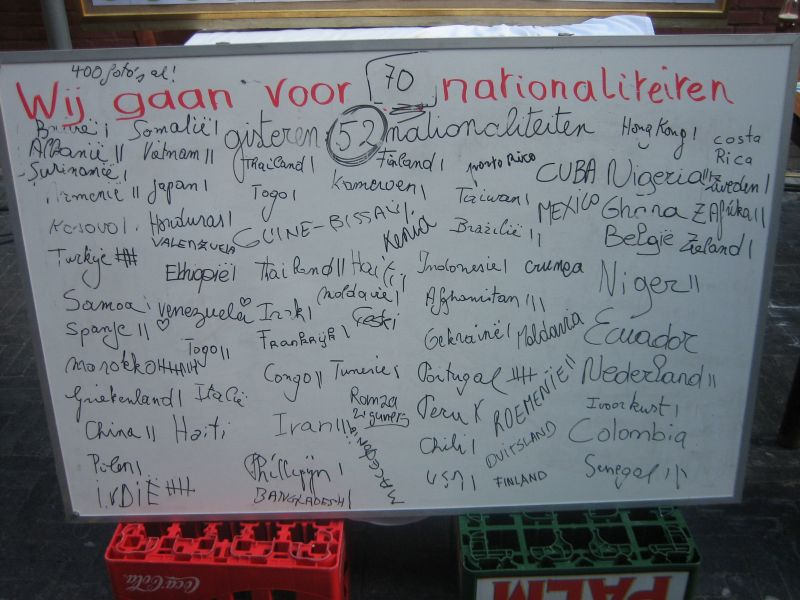 400 foto's al!
Wij gaan voor 70 nationaliteiten
gisteren 52 nationaliteiten
Somalië | Hong Kong | costa Rica
Albanië || Vatnam || Thailand | Finland | porto Rico CUBA Nigeria Zweden |
Surinamië |
Armenië || Japan | Togo | Kameroen | Taiwan | MEXICO Ghana ZAfrika ||
Kosovo | Honduras | GUINE-BISSAU | Kenia Brazilië || België Zeeland |
VALENZUELA
Turkije Ethiopië | Tailand || Haiti Indonesie | Niger ||
Samoa venezuela Irak | Moldavië | Afghanistan ||| Moldavia
Spanje || Frankrijk | Oekraïne | Ecuador
Marokko Togo || Congo || Tunesie | Portugal Nederland ||
Griekenland | Italië Romza ziguners Peru ROEMENIE || Ivoorkust |
China || Haiti Iran Chili | DUITSLAND Colombia
Polen | Phillipijn | USA | FINLAND Senegal
INDIË BANGLADESH | MACEDONIA
Coca-Cola
PALM